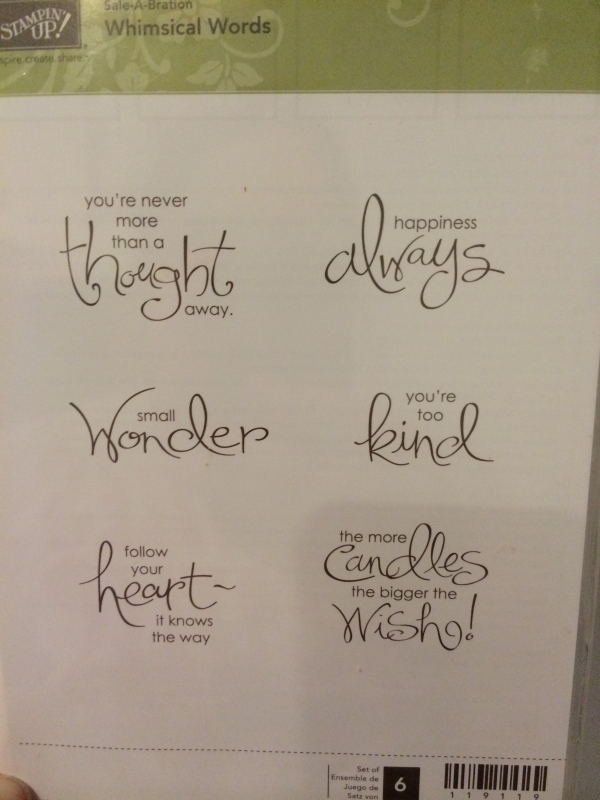 STAMPIN' UP!
inspire.create.share.
Sale-A-Bration
Whimsical Words
you're never
more
than a
thought
away.
happiness
always
small
Wonder
you're
too
kind
follow
your
heart~
it knows
the way
the more
Candles
the bigger the
Wish!
Set of
Ensemble de
Juego de
Satz von
6
119119